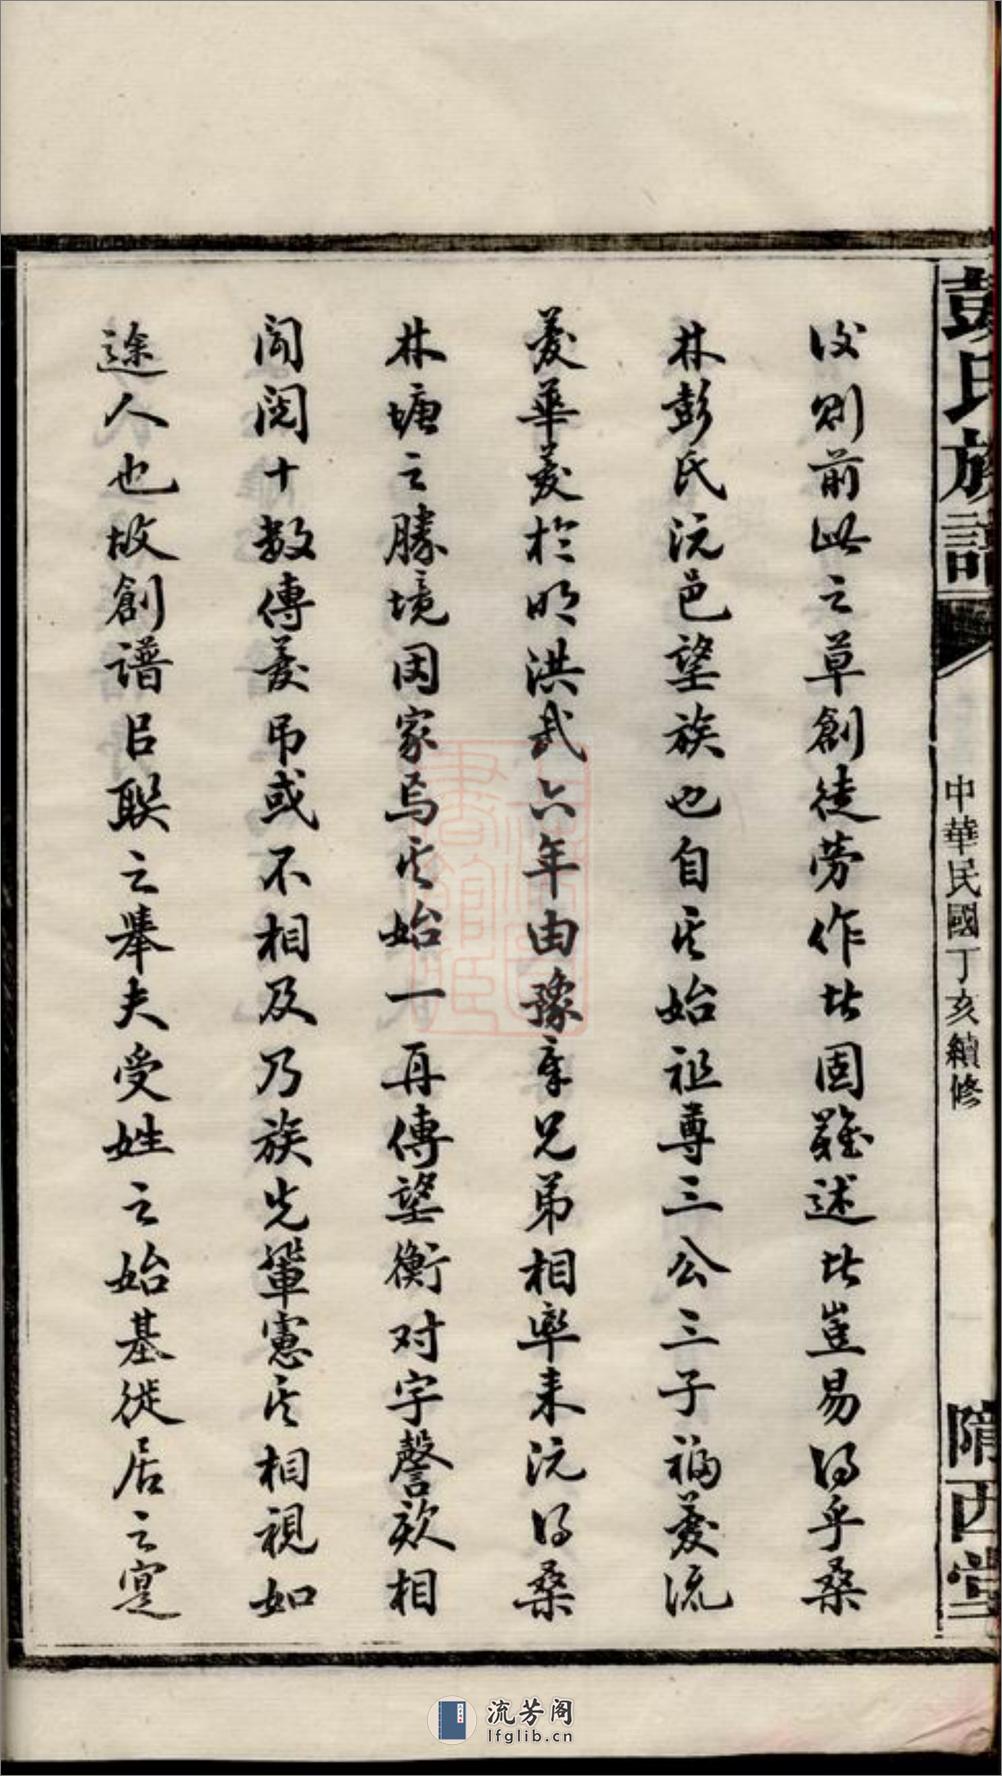 彭氏族譜
中華民國丁亥續修
隴西堂
後則前此之草創徒勞作者固難述者豈易得乎桑
林彭氏沅邑望族也自其始祖尊三公三子福慶流
慶華慶於明洪武六年由豫章兄弟相率来沅得桑
林塘之勝境因家焉其始一再傳望衡对宇謦欬相
聞閱十数傳慶吊或不相及乃族先輩憲其相視如
途人也故創譜㠯聨之舉夫受姓之始基徙居之寔
流芳阁
lfglib.cn